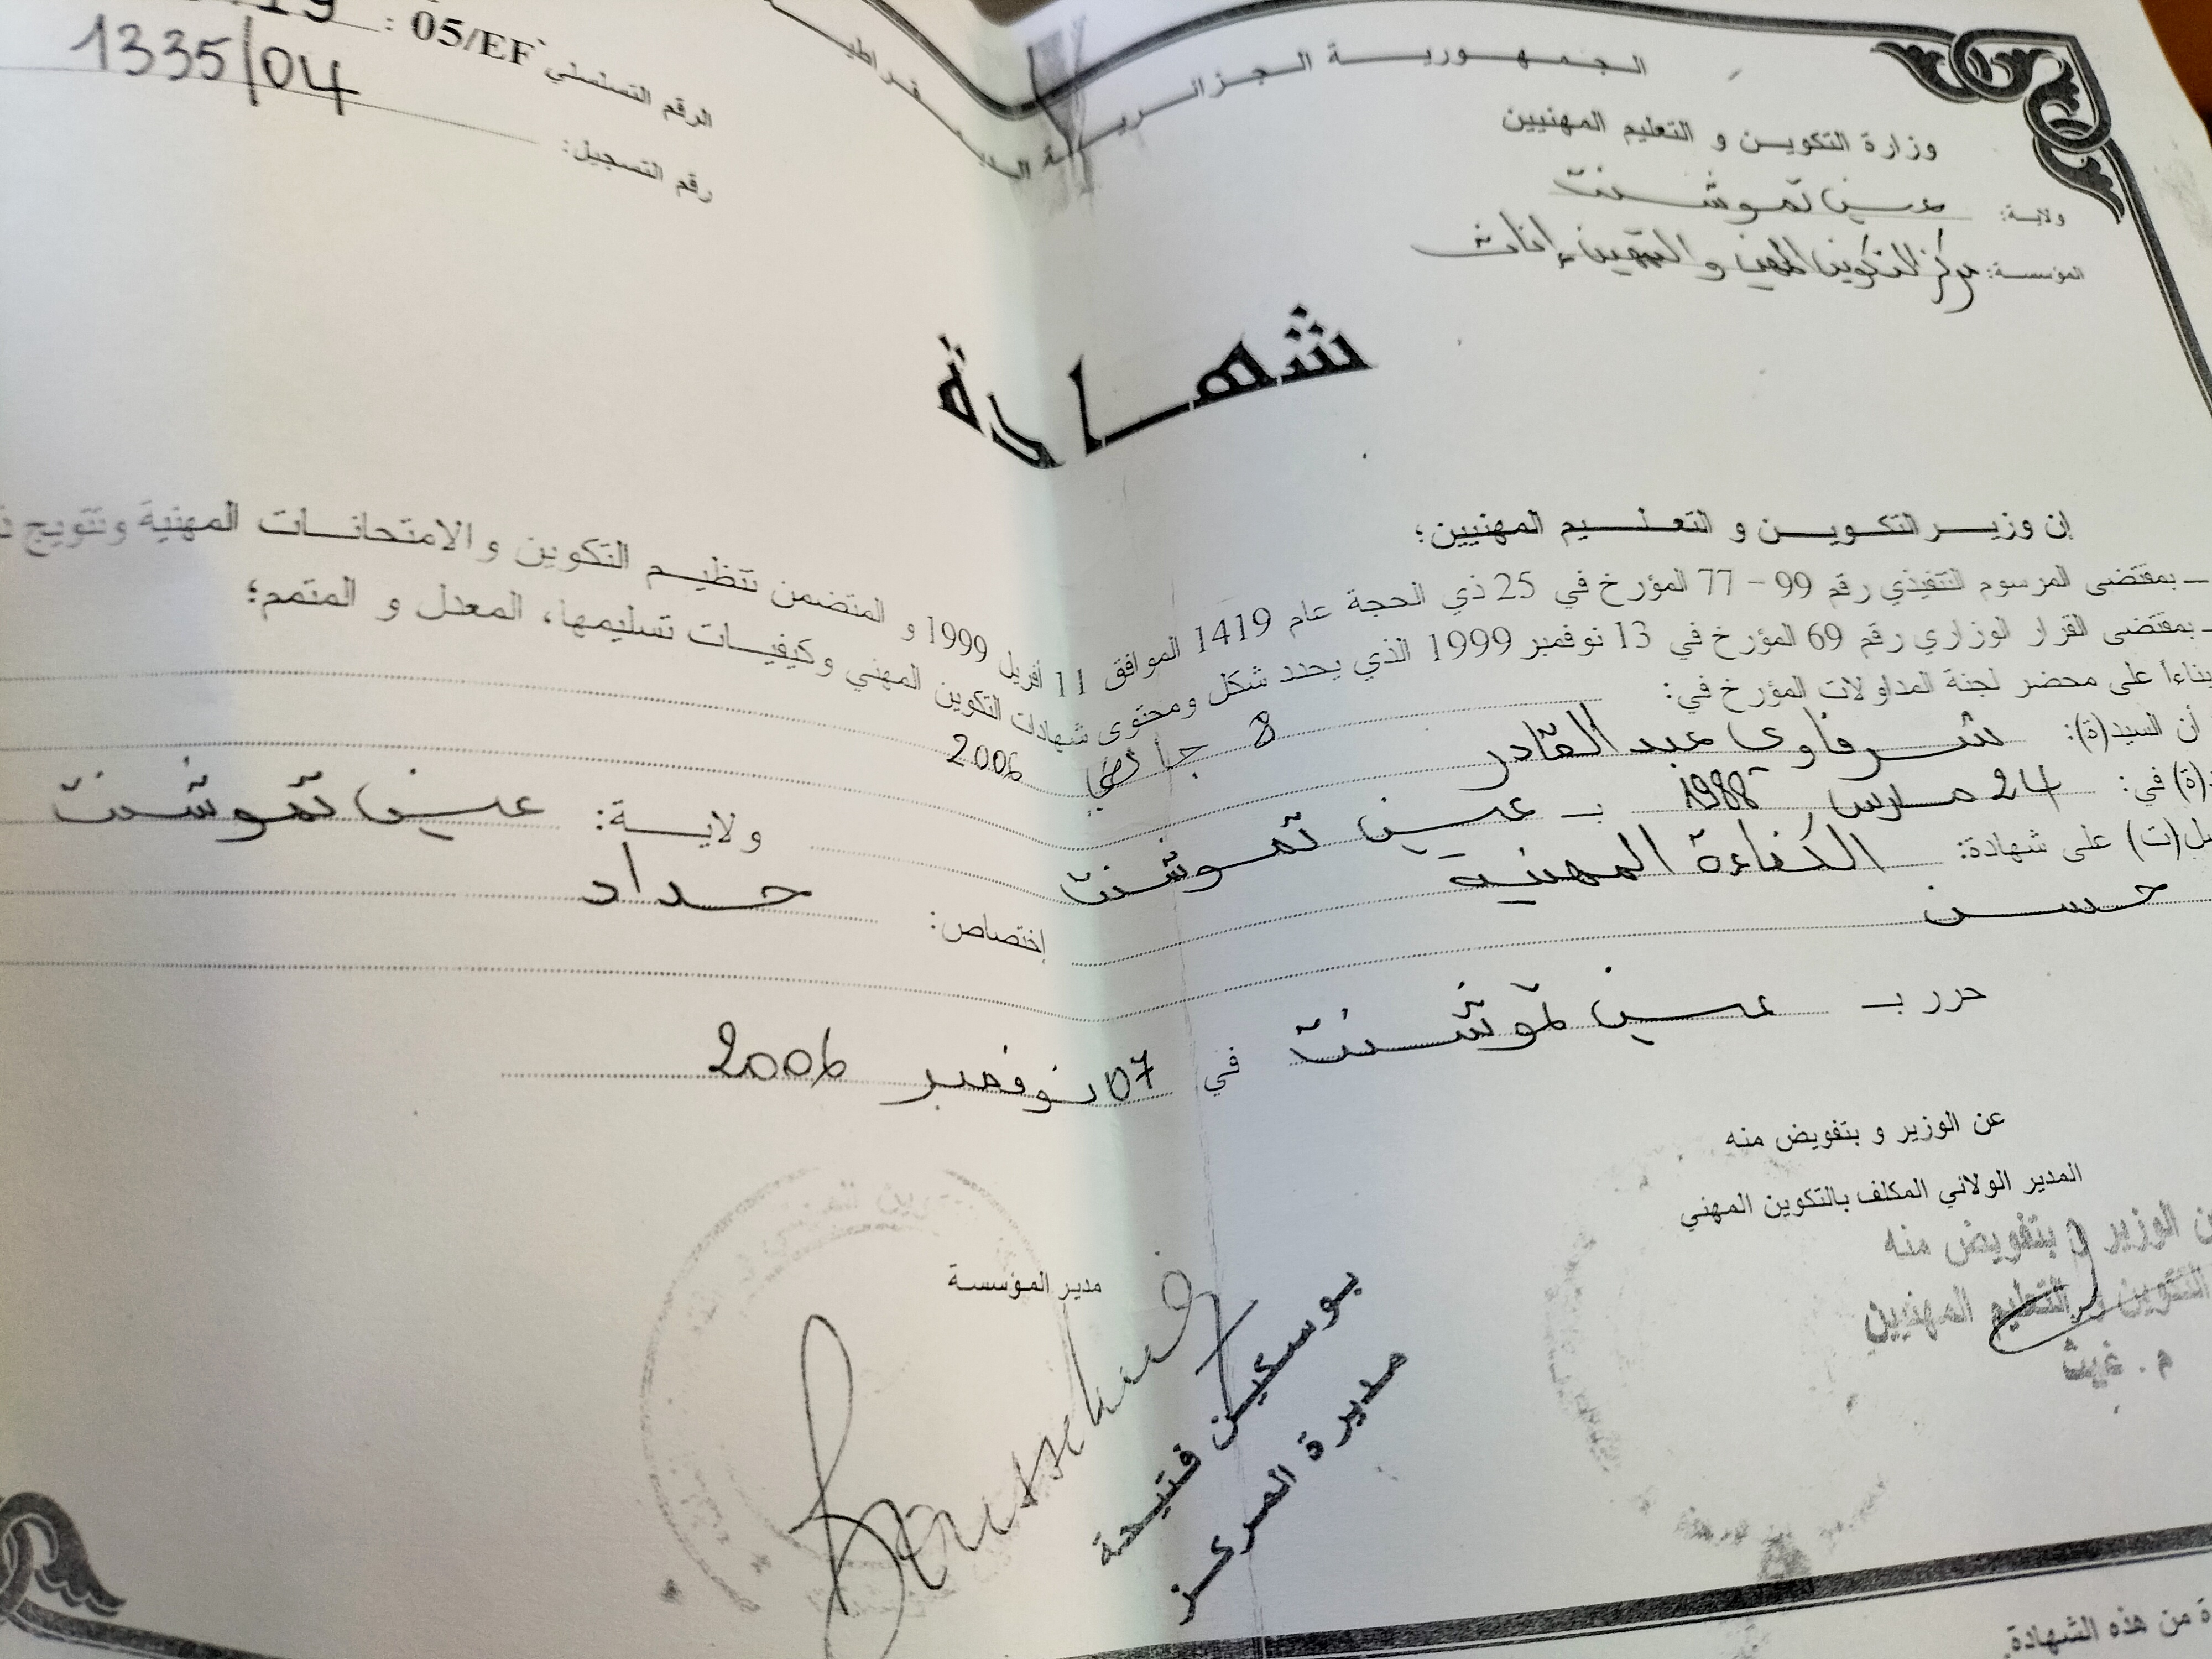 الجمهورية الجزائرية الديمقراطية
وزارة التكوين و التعليم المهنيين
ولاية: عين تموشنت
المؤسسة: مركز التكوين المهني و التمهين إناث
الرقم التسلسلي 05/EF :
رقم التسجيل: 1335/04
شهادة
إن وزير التكوين و التعليم المهنيين؛
ـ بمقتضى المرسوم التنفيذي رقم 99 - 77 المؤرخ في 25 ذي الحجة عام 1419 الموافق 11 أفريل 1999 و المتضمن تنظيم التكوين و الامتحانات المهنية وتتويج
ـ بمقتضى القرار الوزاري رقم 69 المؤرخ في 13 نوفمبر 1999 الذي يحدد شكل ومحتوى شهادات التكوين المهني وكيفيات تسليمها، المعدل و المتمم؛
بناءا على محضر لجنة المداولات المؤرخ في: 8 2006
أن السيد(ة): شرفاوي عبد القادر
في: 24 مارس 1988 بـ عين تموشنت ولاية: عين تموشنت
على شهادة: الكفاءة المهنية إختصاص: حداد
حسن
حرر بـ عين تموشنت في 07 نوفمبر 2006
عن الوزير و بتفويض منه
المدير الولائي المكلف بالتكوين المهني
الوزير و بتفويض منه
التكوين و التعليم المهنيين
م . غيث
مدير المؤسسة
بوسكين فتيحة
مديرة المركز
من هذه الشهادة.